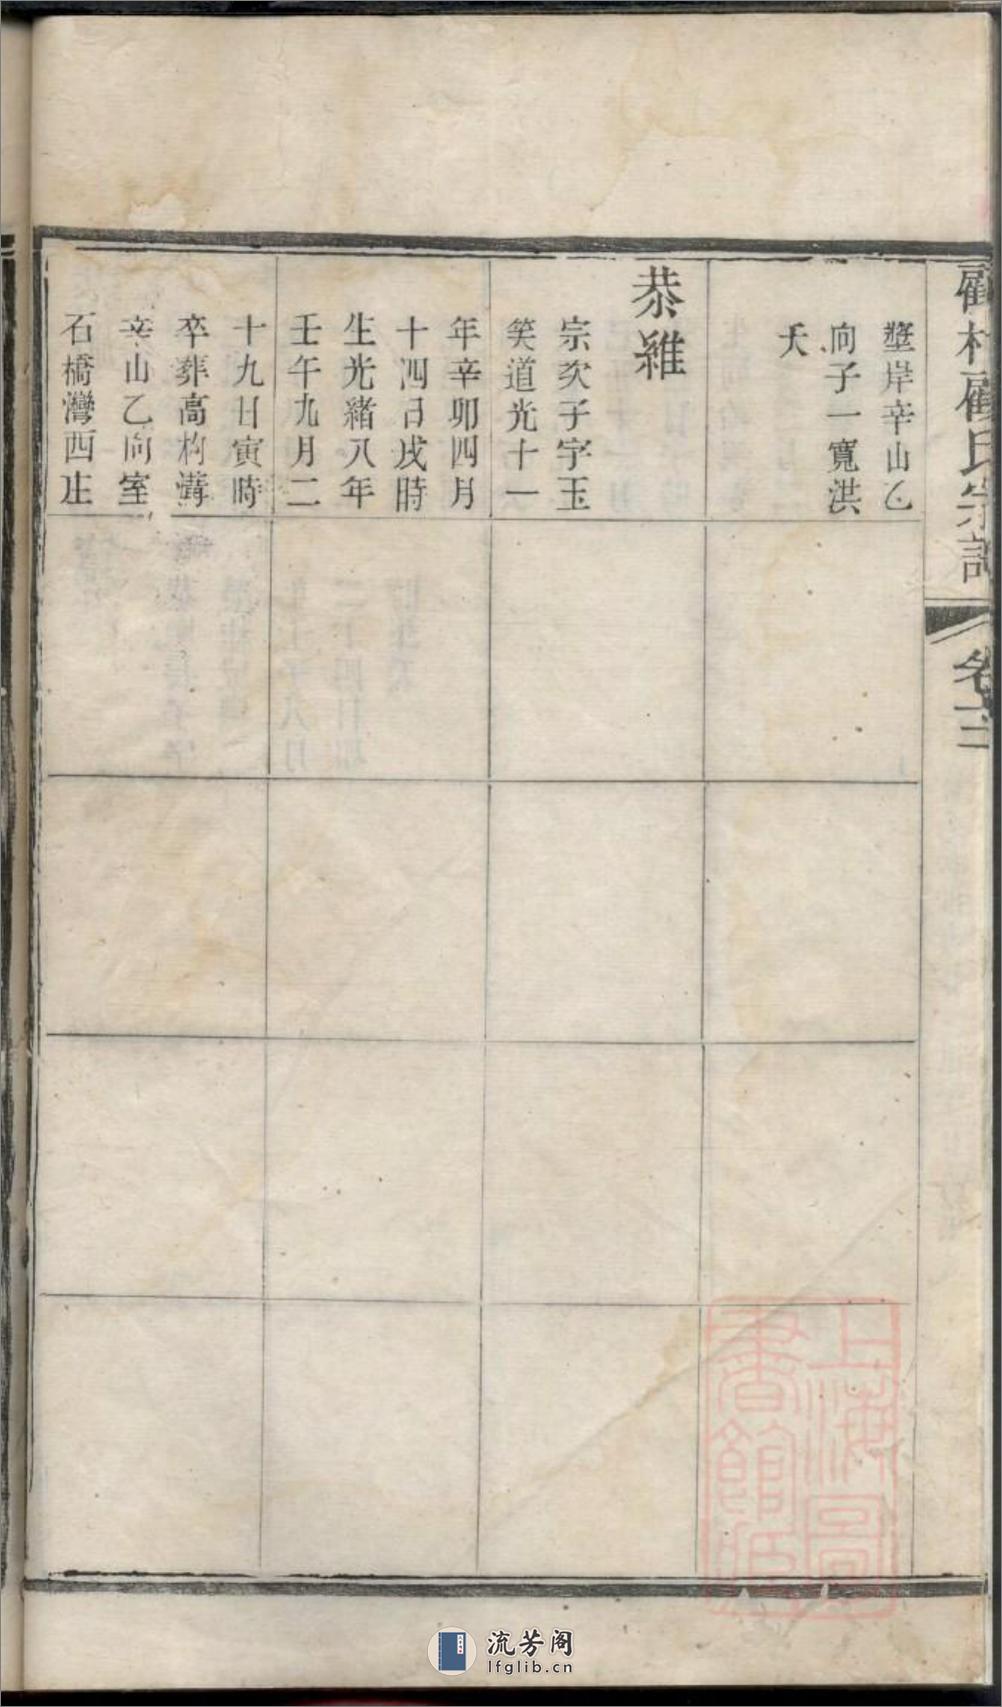 顧村顧氏宗譜
卷十二
壟岸辛山乙
向子一寬洪
夭
恭維
宗次子字玉
笑道光十一
年辛卯四月
十四日戌時
生光緒八年
壬午九月二
十九日寅時
卒葬高构溝
辛山乙向室
石橋灣西庄
上海圖書館藏
流芳阁
lfglib.cn